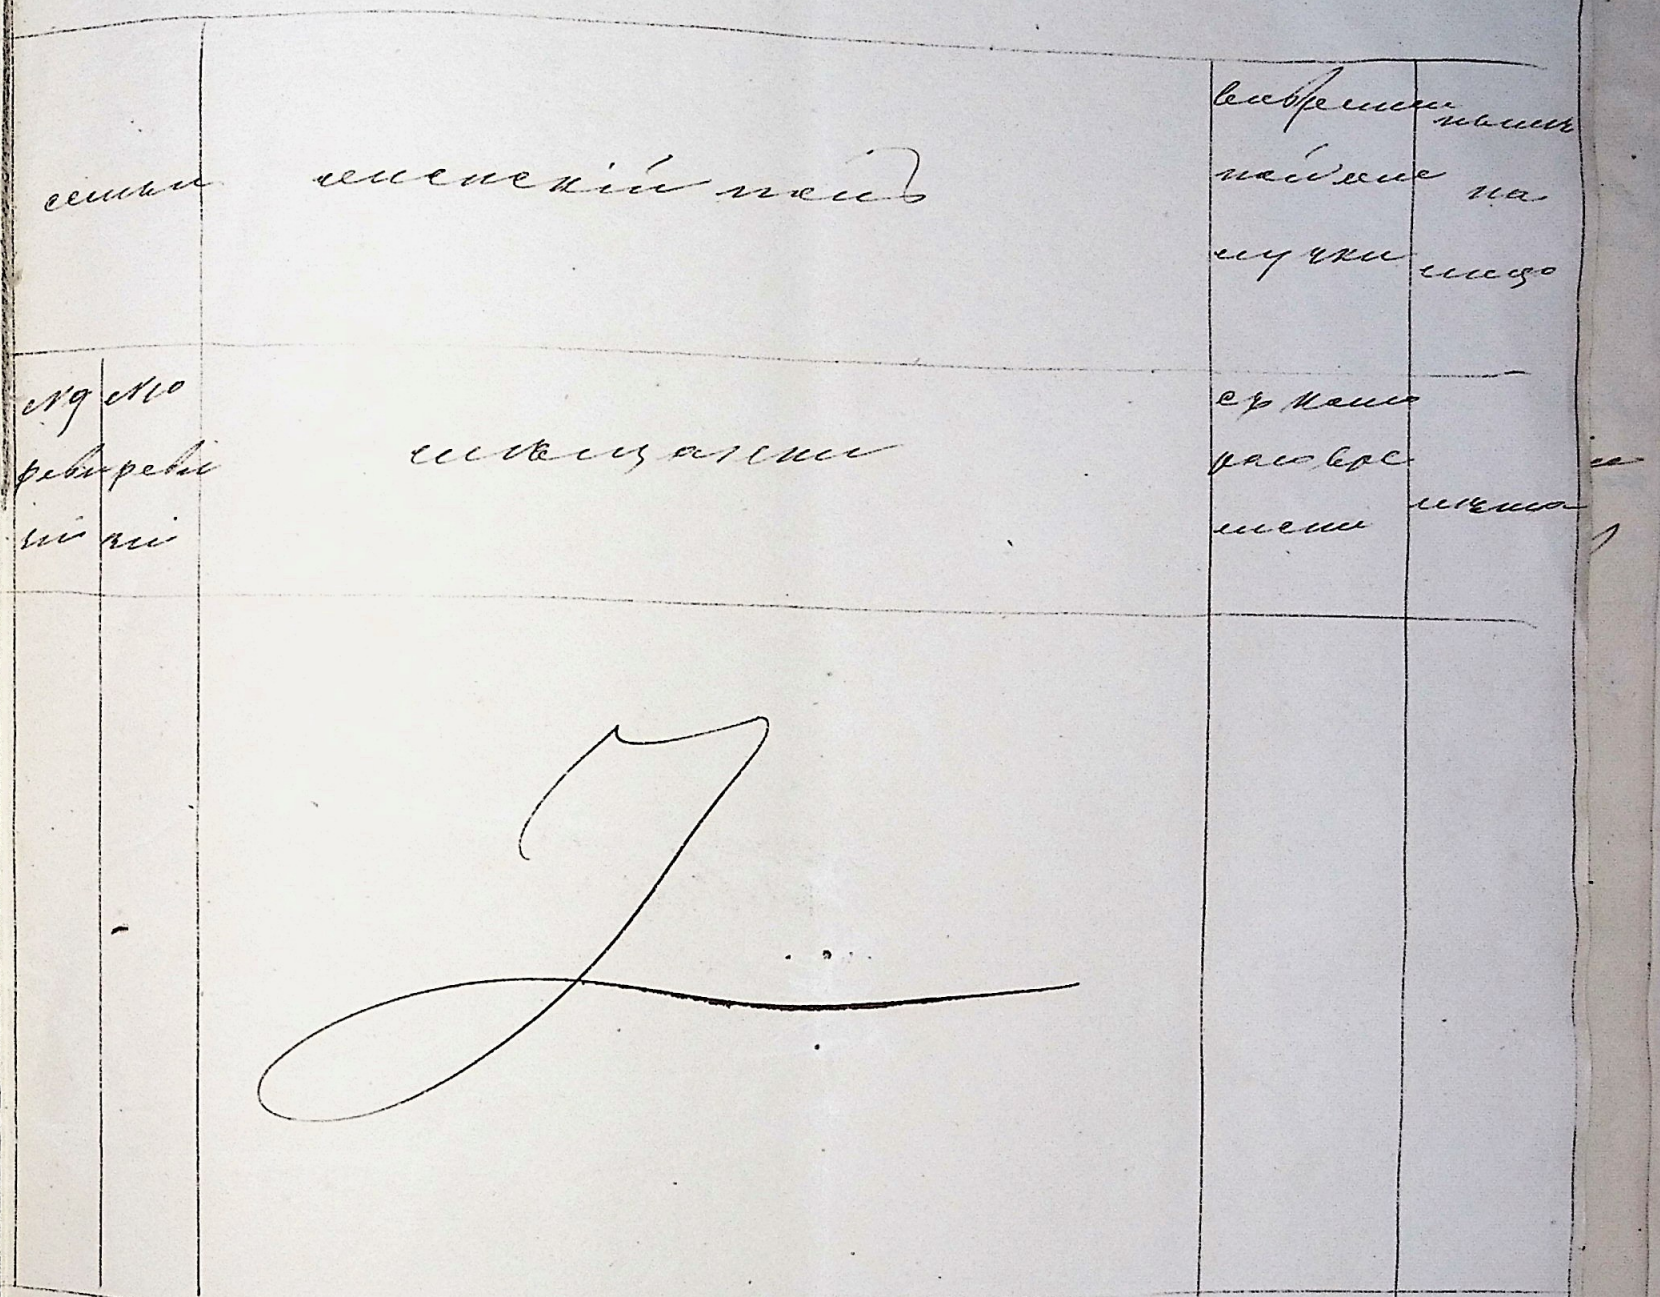 семьи
женскій полъ
во времен
ной отлучки
нынѣ
на
лицо
№ 9 ревизіи
№ 10 ревизіи
мѣщанки
съ кото
раго вре
мени
лѣта